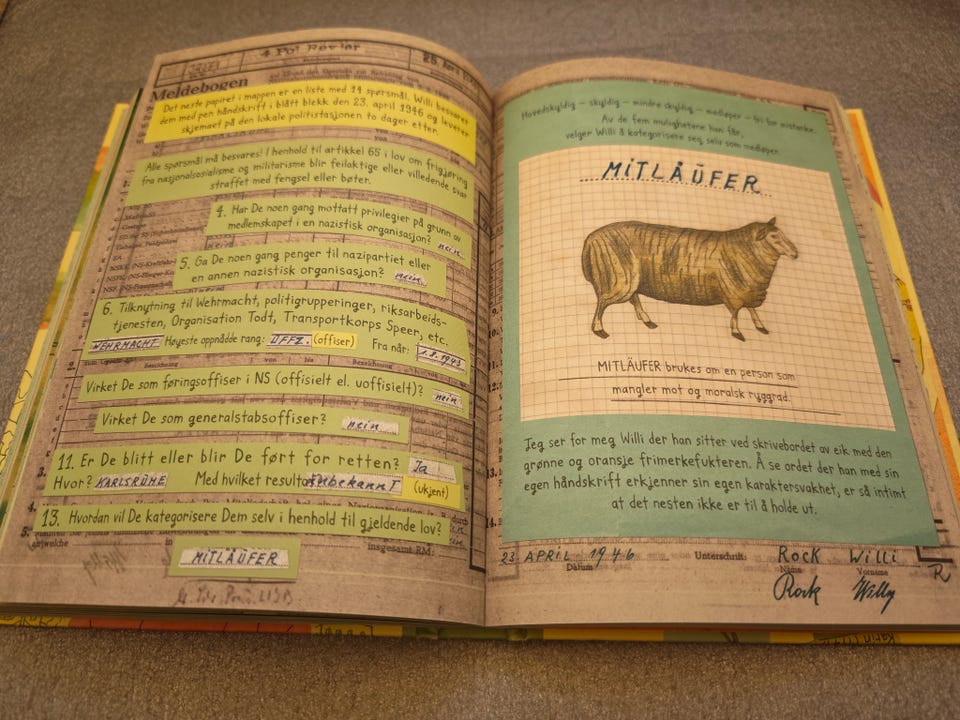 4. Pol Revier
Meldebogen
Det neste papiret i mappen er en liste med 14 spørsmål. Willi besvarer
dem med pen håndskrift i blått blekk den 23. april 1946 og leverer
skjemaet på den lokale politistasjonen to dager etter.
Alle spørsmål må besvares! I henhold til artikkel 65 i lov om frigjøring
fra nasjonalsosialisme og militarisme blir feilaktige eller villedende svar
straffet med fengsel eller bøter.
4. Har De noen gang mottatt privilegier på grunn av
medlemskapet i en nazistisk organisasjon? nein.
5. Ga De noen gang penger til nazipartiet eller
en annen nazistisk organisasjon? nein.
6. Tilknytning til Wehrmacht, politigrupperinger, riksarbeids-
tjenesten, Organisation Todt, Transportkorps Speer, etc.
WEHRMACHT. Høyeste oppnådde rang: UFFZ. (offiser) Fra når: 1.8.1943
Virket De som føringsoffiser i NS (offisielt el. uoffisielt)? nein.
Virket De som generalstabsoffiser? nein.
11. Er De blitt eller blir De ført for retten? Ja
Hvor? KARLSRÜHE Med hvilket resultat unbekannt (ukjent)
13. Hvordan vil De kategorisere Dem selv i henhold til gjeldende lov?
insgesamt RM:
MITLÄUFER
Hovedskyldig – skyldig – mindre skyldig – medløper – fri for mistanke.
Av de fem mulighetene han får,
velger Willi å kategorisere seg selv som medløper.
MITLÄUFER
MITLÄUFER brukes om en person som
mangler mot og moralsk ryggrad.
Jeg ser for meg Willi der han sitter ved skrivebordet av eik med den
grønne og oransje frimerkefukteren. Å se ordet der han med sin
egen håndskrift erkjenner sin egen karaktersvakhet, er så intimt
at det nesten ikke er til å holde ut.
23. APRIL 1946 Unterschrift: ROCK WILLI
Datum Name Vorname
Rock Willy